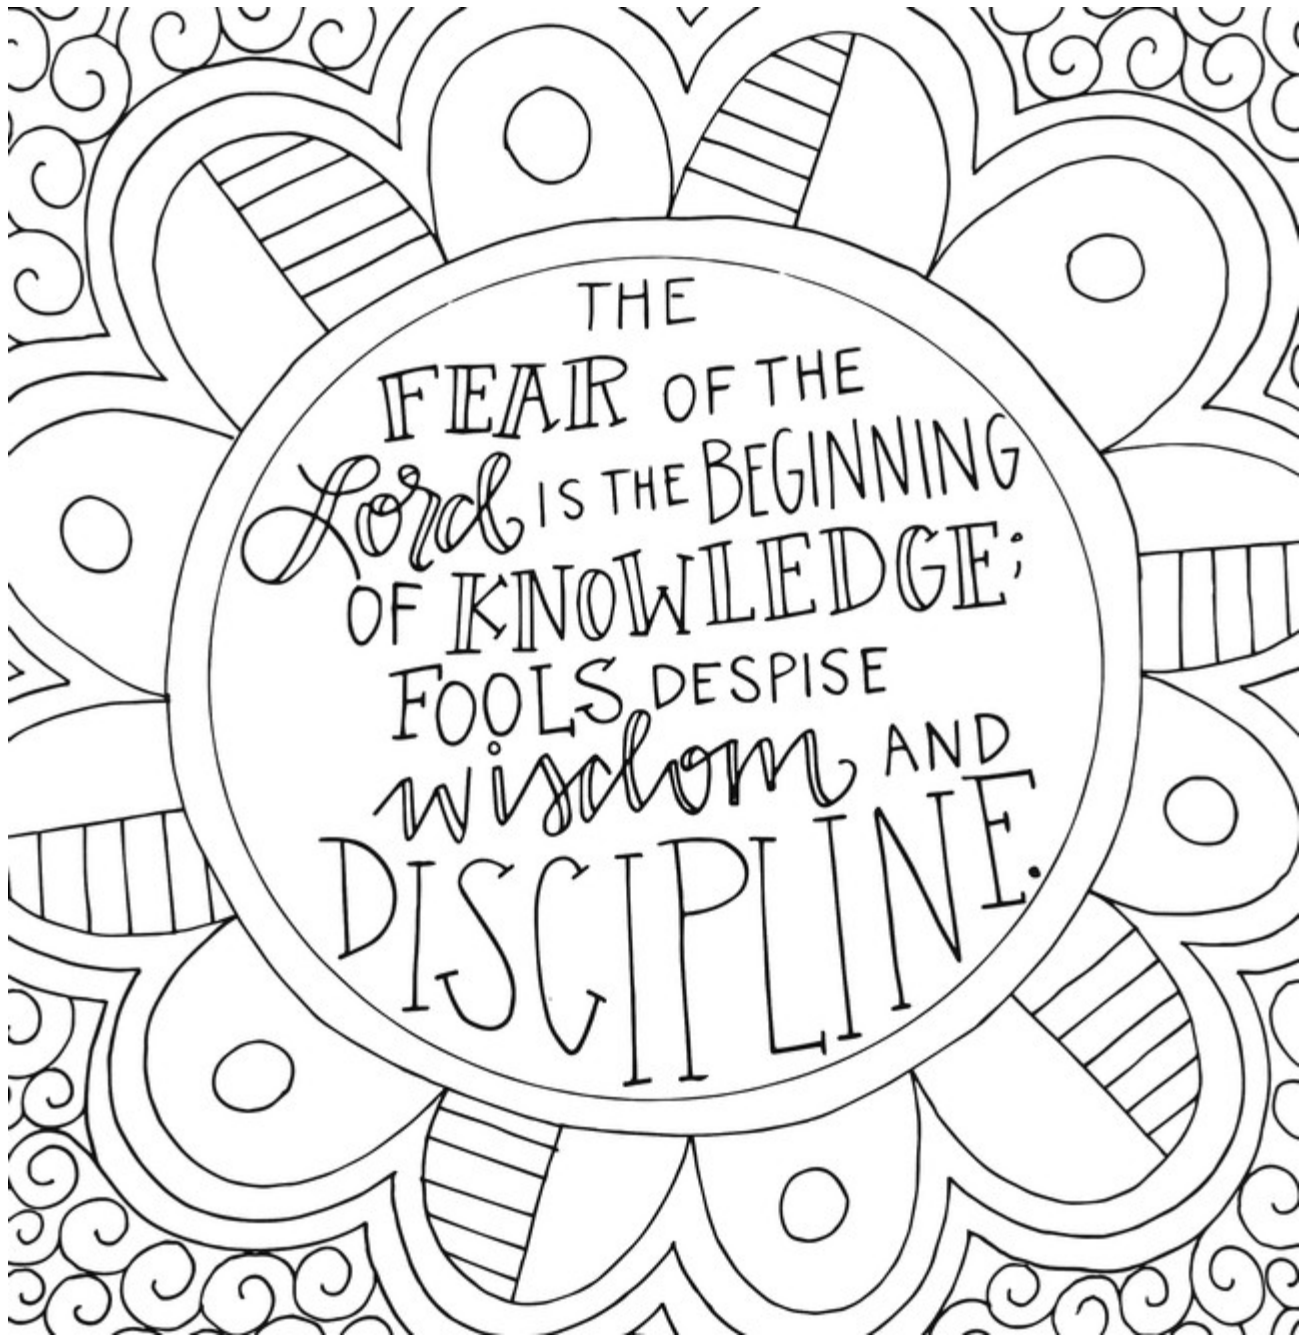 THE
FEAR OF THE
Lord IS THE BEGINNING
OF KNOWLEDGE;
FOOLS DESPISE
wisdom AND
DISCIPLINE.